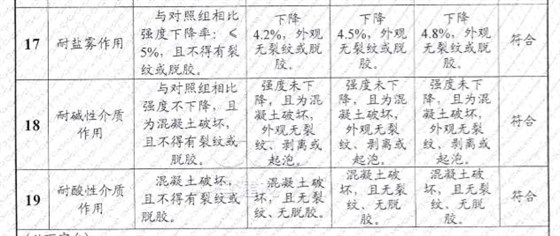 17 耐盐雾作用 与对照组相比强度下降率：≤5%，且不得有裂纹或脱胶。 下降4.2%，外观无裂纹或脱胶。 下降4.5%，外观无裂纹或脱胶。 下降4.8%，外观无裂纹或脱胶。 符合
18 耐碱性介质作用 与对照组相比强度不下降，且为混凝土破坏，且不得有裂纹或脱胶。 强度未下降，且为混凝土破坏，外观无裂纹、剥离或起泡。 强度未下降，且为混凝土破坏，外观无裂纹、剥离或起泡。 强度未下降，且为混凝土破坏，外观无裂纹、剥离或起泡。 符合
19 耐酸性介质作用 混凝土破坏，且不得有裂纹或脱胶。 混凝土破坏，且无裂纹、无脱胶。 混凝土破坏，且无裂纹、无脱胶。 混凝土破坏，且无裂纹、无脱胶。 符合